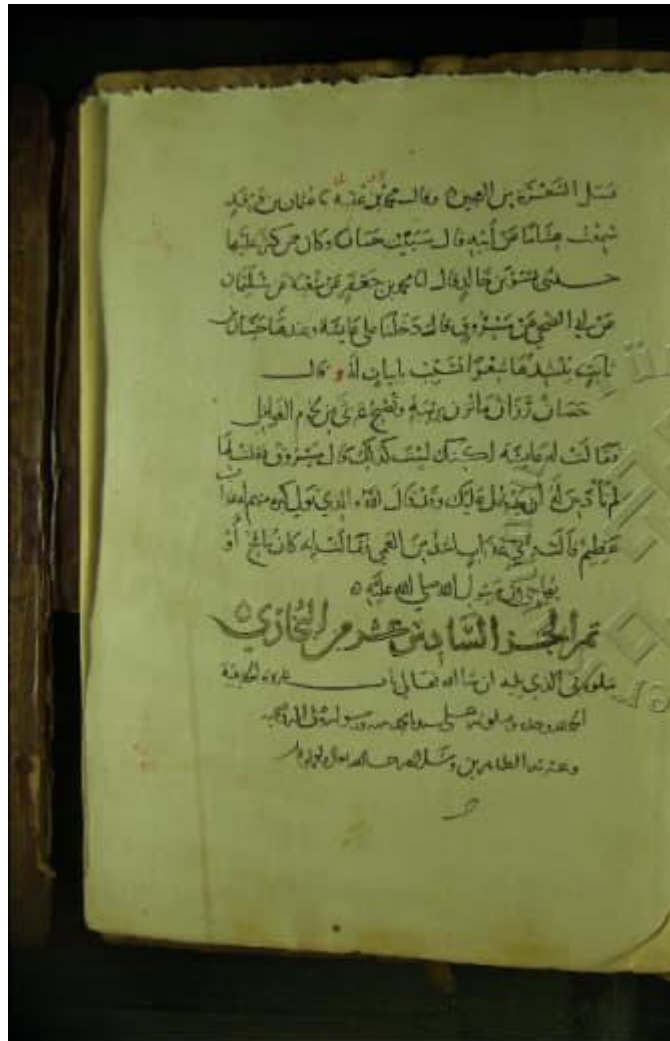 تسل الشعرة من العجين وقال محمد بن عقبة نا عثمان بن فرقد
سمعت هشاما عن أبيه قال سببت حسان وكان ممن كثر عليها
حدثني بشر بن خالد قال انا محمد بن جعفر عن شعبة عن سليمان
عن ابي الضحى عن مسروق قال دخلنا على عايشة وعندها حسان بن
ثابت ينشدها شعرا يشبب بابيات له وقال
حصان رزان ما تزن بريبة وتصبح غرثى من لحوم الغوافل
فقالت له عايشة لكنك لست كذلك قال مسروق فقلت لها
لم تأذنين له أن يدخل عليك وقد قال الله والذي تولى كبره منهم له عذاب
عظيم قالت واي عذاب اشد من العمى فقالت انه كان ينافح أو
يهاجي عن رسول الله صلى الله عليه
تم الجزء السادس عشر من البخاري
يتلوه في الذي يليه ان شا الله تعالى باب غزوة الحديبية
الحمد لله وحده وصلوته على سيدنا محمد
وعترته الطاهرين وسلم